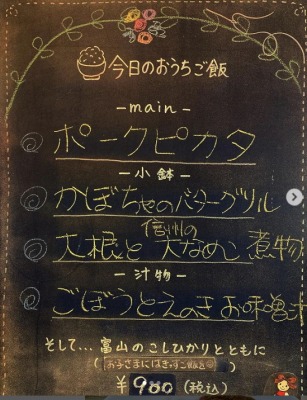 今日のおうちご飯
-main-
ポークピカタ
-小鉢-
かぼちゃのバターグリル
信州の
大根と大なめこ煮物
-汁物-
ごぼうとえのきお味噌汁
そして...富山のこしひかりとともに
(お子さまには
¥900(税込)